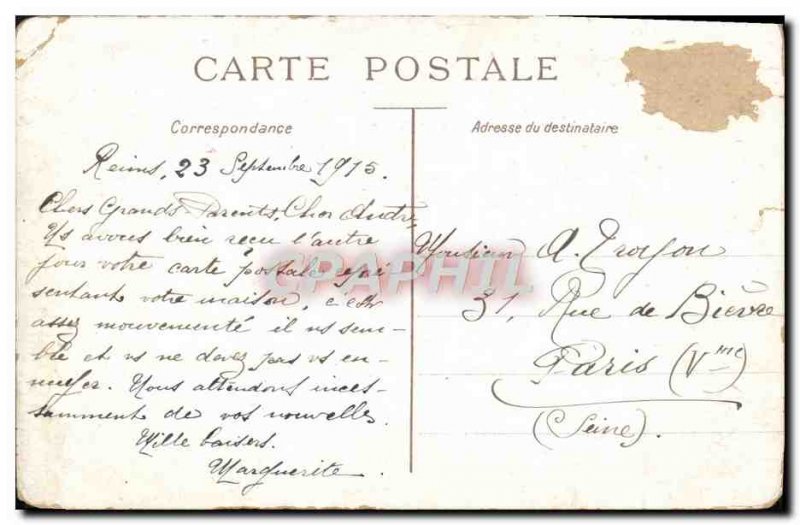 CARTE POSTALE
Correspondance
Adresse du destinataire
Reims, 23 Septembre 1915.
Chers Grands-Parents, Cher André,
Ns avons bien reçu l'autre
jour votre carte postale repré
sentant votre maison, c'est
assez mouvementé il ns sem-
ble et vs ne devez pas vs en-
nuyer. Nous attendons inces-
samment de vos nouvelles.
Mille baisers.
Marguerite.
Monsieur A. Troyon
31, Rue de Bièvre
Paris (Vme)
(Seine).
CPAPHIL